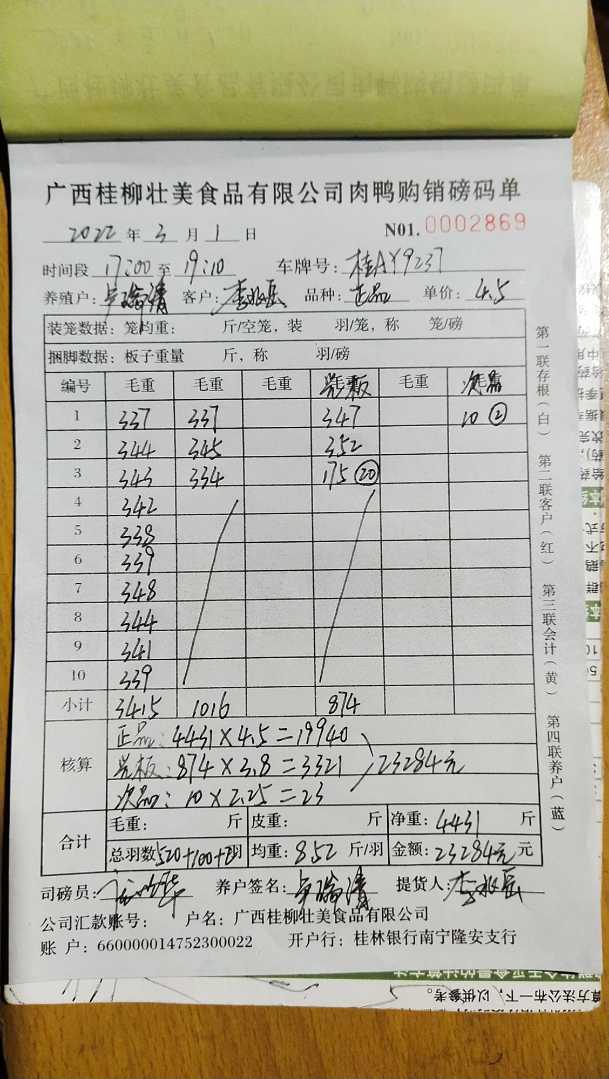 广西桂柳壮美食品有限公司肉鸭购销磅码单
2022 年 3 月 1 日 N01. 0002869
时间段 17:00 至 19:10 车牌号: 桂AY9237
养殖户: 客户: 品种: 正品 单价: 4.5
装笼数据: 笼均重: 斤/空笼, 装 羽/笼, 称 笼/磅
捆脚数据: 板子重量 斤, 称 羽/磅
编号 毛重 毛重 毛重 毛重 次品
1 337 337 347 10 ②
2 344 345 352
3 343 334 175 ⑳
4 342
5 338
6 339
7 348
8 344
9 341
10 339
小计 3415 1016 874
核算
正品: 4431×4.5=19940
板: 874×3.8=3321 23284元
次品: 10×2.25=23
合计 毛重: 斤 皮重: 斤 净重: 4431 斤
总羽数 520+100+2羽 均重: 8.52 斤/羽 金额: 23284元 元
司磅员: 养户签名: 提货人:
公司汇款账号: 户名: 广西桂柳壮美食品有限公司
账 户: 660000014752300022 开户行: 桂林银行南宁隆安支行
第一联存根(白) 第二联客户(红) 第三联会计(黄) 第四联养户(蓝)
算方法公布一下,以供参考。